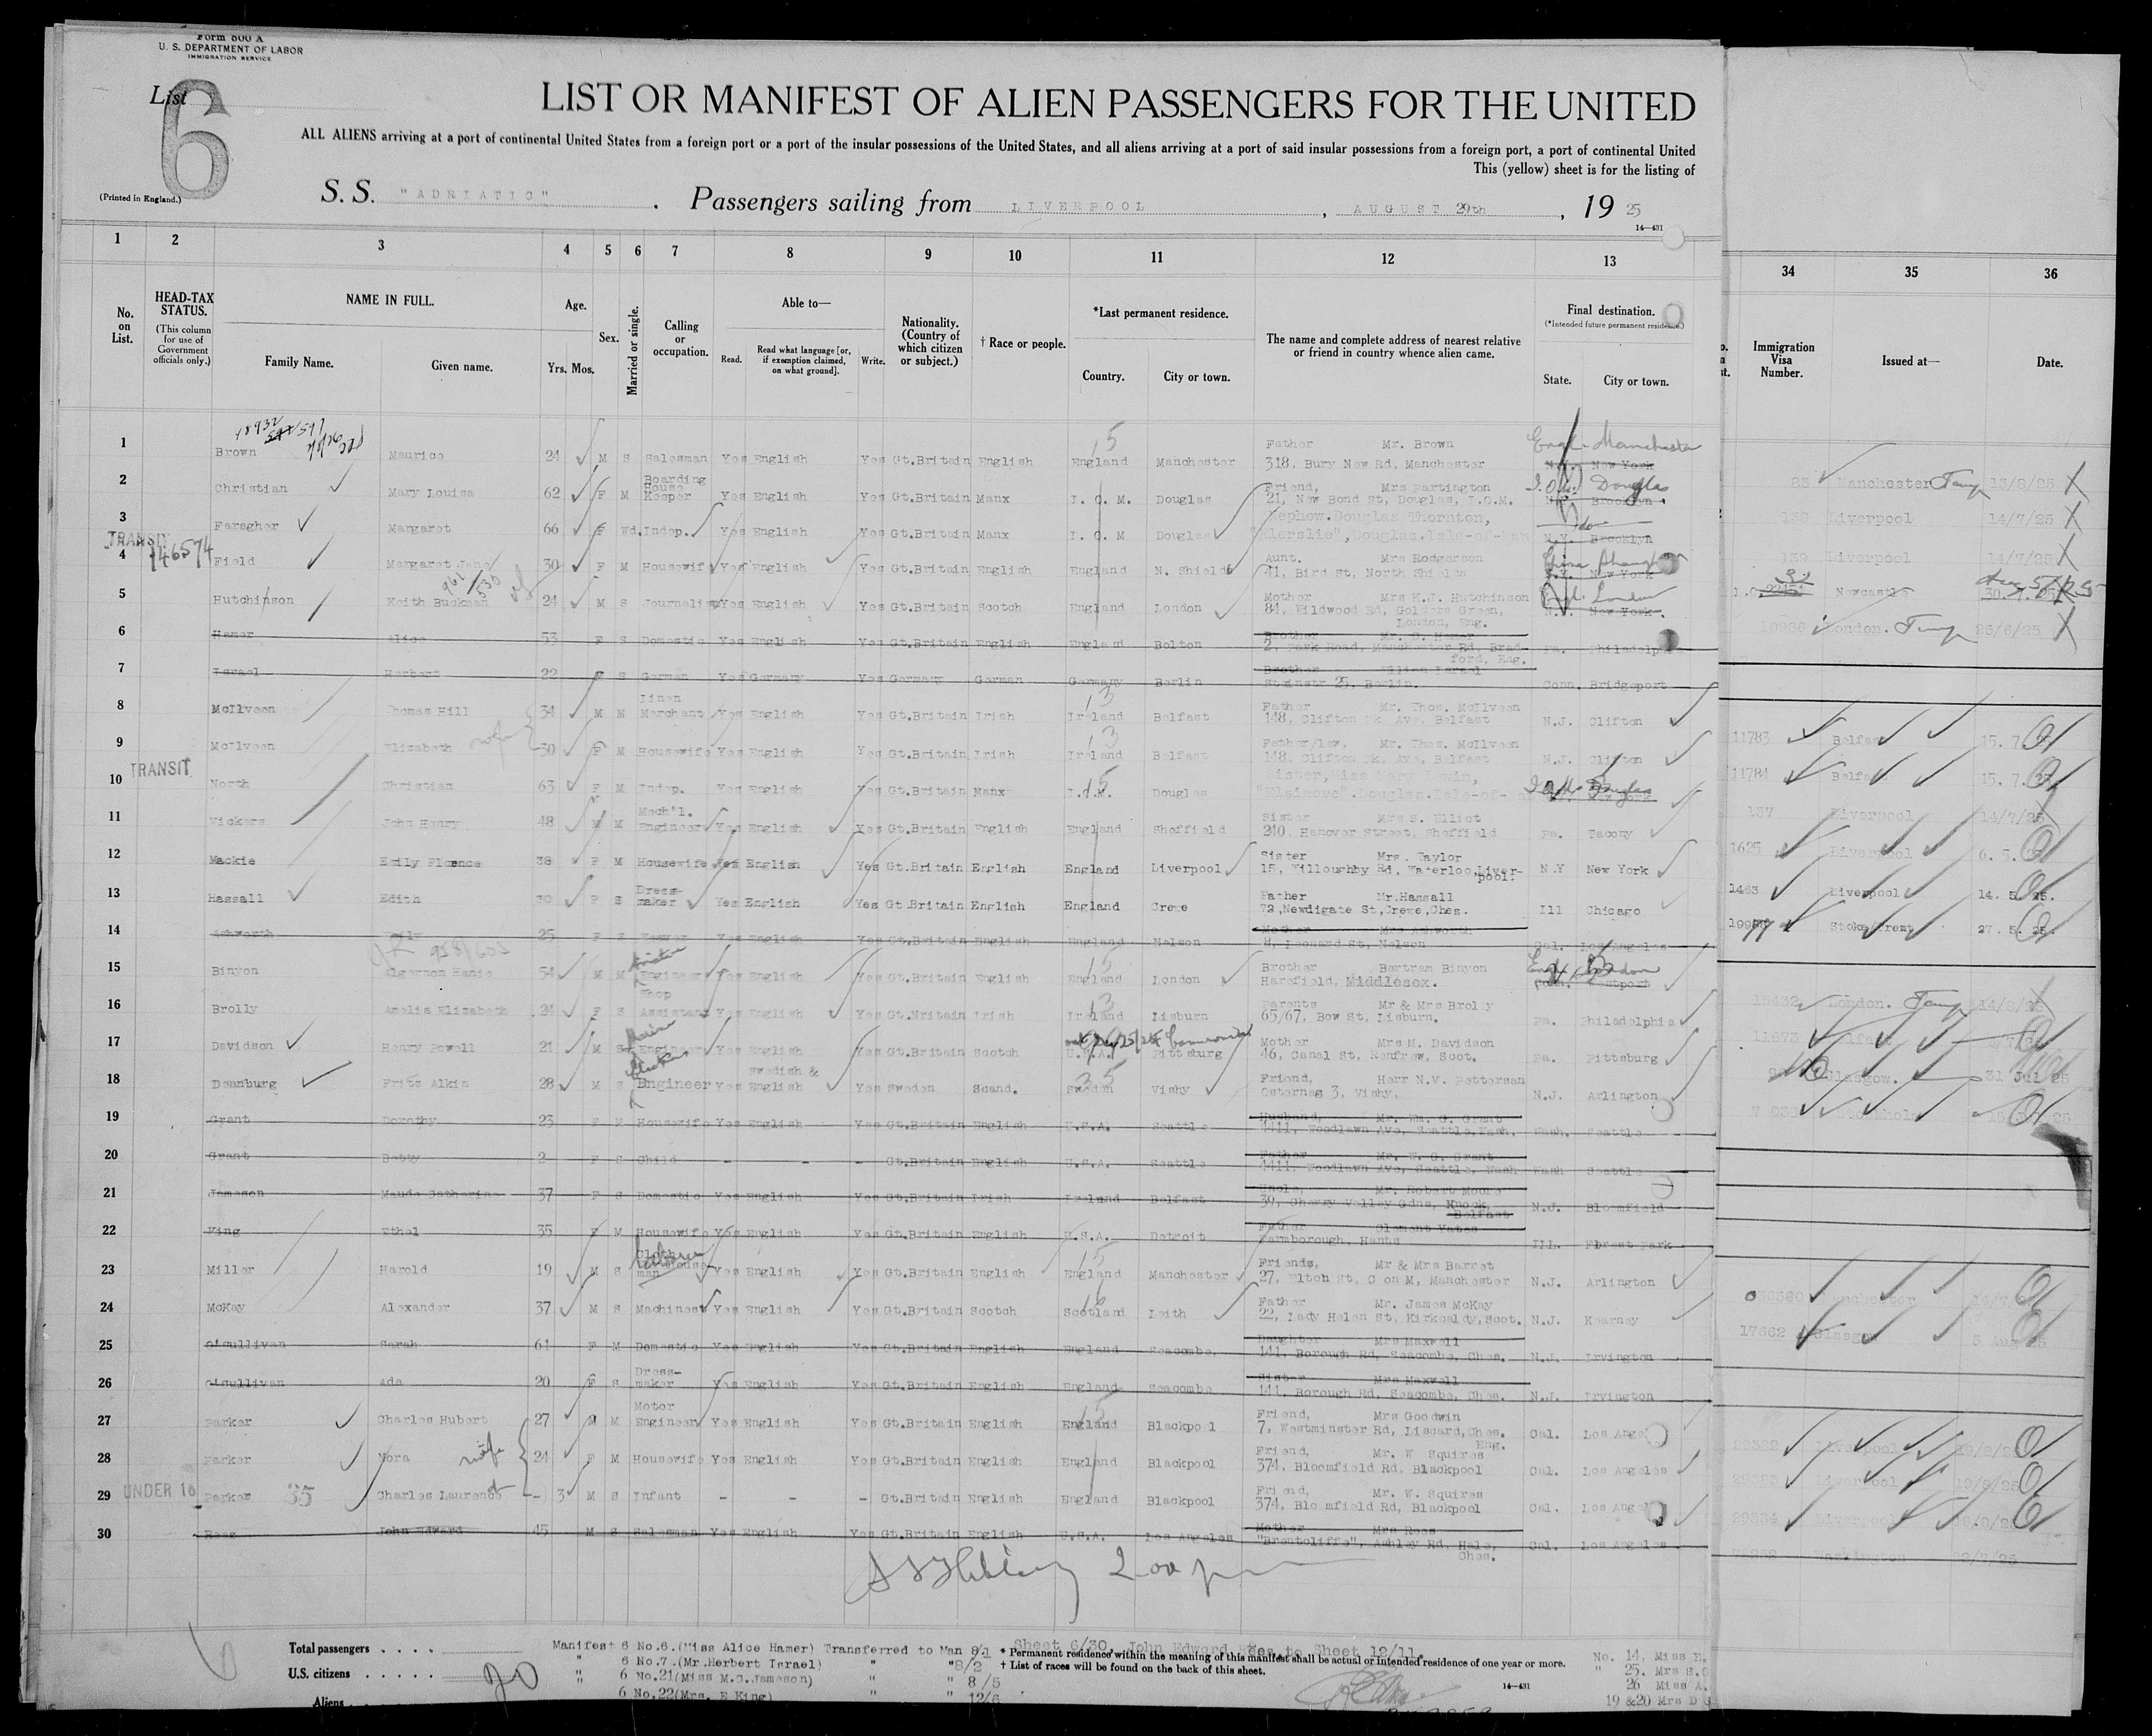 Form 800 A
U. S. DEPARTMENT OF LABOR
IMMIGRATION SERVICE
List 6
LIST OR MANIFEST OF ALIEN PASSENGERS FOR THE UNITED
ALL ALIENS arriving at a port of continental United States from a foreign port or a port of the insular possessions of the United States, and all aliens arriving at a port of said insular possessions from a foreign port, a port of continental United
This (yellow) sheet is for the listing of
(Printed in England.)
S. S. "ADRIATIC". Passengers sailing from LIVERPOOL, AUGUST 29th, 19 25
14—431
1 2 3 4 5 6 7 8 9 10 11 12 13 34 35 36
No. on List.
HEAD-TAX STATUS.
(This column for use of Government officials only.)
NAME IN FULL.
Family Name. Given name.
Age.
Yrs. Mos.
Sex.
Married or single.
Calling or occupation.
Able to—
Read. Read what language [or, if exemption claimed, on what ground]. Write.
Nationality. (Country of which citizen or subject.)
† Race or people.
*Last permanent residence.
Country. City or town.
The name and complete address of nearest relative or friend in country whence alien came.
Final destination.
(*Intended future permanent residence.)
State. City or town.
Immigration Visa Number.
Issued at—
Date.
1 Brown Maurice 24 M S Salesman Yes English Yes Gt.Britain English England Manchester Father Mr. Brown 318, Bury New Rd, Manchester Engl. Manchester N.Y. New York 83 Manchester 13/8/25
2 Christian Mary Louisa 62 F M Boarding House Keeper Yes English Yes Gt.Britain Manx I. O. M. Douglas Friend, Mrs Partington 21, New Bond St, Douglas, I.O.M. I.O.M. Douglas Brooklyn 138 Liverpool 14/7/25
3 Faragher Margaret 66 F Wd. Indep. Yes English Yes Gt.Britain Manx I. O. M Douglas Nephew. Douglas Thornton, Douglas. Isle-of-Man do N.Y. Brooklyn 139 Liverpool 14/7/25
TRANSIT 146574
4 Field Margaret Jane 30 F M Housewife Yes English Yes Gt.Britain English England N. Shields Aunt. Mrs Rodgerson 41, Bird St, North Shields China N.Y. New York Newcastle 30.7.25
5 Hutchinson Keith Buckman 24 M S Journalist Yes English Yes Gt.Britain Scotch England London Mother Mrs K.J. Hutchinson 84, Wildwood Rd, Golders Green, London, Eng. Engl. London N.Y. New York. London. 26/6/25
6 Hamer Alice 53 F S Domestic Yes English Yes Gt.Britain English England Bolton Brother Mr. G. Hamer 2, Park Road, Manchester Rd, Bradford, Eng. Pa. Philadelphia
7 Israel Herbert 22 S German Yes Germany Yes Germany German Germany Berlin Brother Israel Steinstr 25, Berlin. Conn. Bridgeport
8 McIlveen Thomas Hill 34 M M Linen Merchant Yes English Yes Gt.Britain Irish Ireland Belfast Father Mr. Thos. McIlveen 148, Clifton Pk Ave, Belfast N.J. Clifton 11783 Belfast
9 McIlveen Elizabeth wife 30 F M Housewife Yes English Yes Gt.Britain Irish Ireland Belfast Father/law, Mr. Thos. McIlveen 148, Clifton Pk. Ave, Belfast N.J. Clifton 11784 Belfast
TRANSIT
10 North Christian 63 F M Indep. Yes English Yes Gt.Britain Manx I.O.M. Douglas Sister, Miss Mary "Elsinore". Douglas. Isle-of- I.O.M. Douglas 137 Liverpool 14/7/25
11 Vickers John Henry 48 M M Mech'l. Engineer Yes English Yes Gt.Britain English England Sheffield Sister Mrs S. Elliot 240, Hanover Street, Sheffield Pa. Tacony 1625 Liverpool 6. 5. 25
12 Mackie Emily Florence 38 F M Housewife Yes English Yes Gt.Britain English England Liverpool Sister Mrs. Taylor 15, Willoughby Rd, Waterloo, Liverpool. N.Y New York 1463 Liverpool 14. 5. 25.
13 Hassall Edith 30 F S Dressmaker Yes English Yes Gt.Britain English England Crewe Father Mr.Hassall 72,Newdigate St,Crewe,Ches. Ill Chicago Stoke/Trent 27. 5. 25.
14 Ashworth Emily 25 F S Weaver Yes English Yes Gt.Britain English England Nelson Mother Mrs Ashworth 8, Leonard St, Nelson Cal. Los Angeles
15 Binyon 54 M M Engineer Yes English Yes Gt.Britain English England London Brother Bertram Binyon Harefield, Middlesex. Engl. London Conn. Westport 15432 London. 14/8/25
16 Brolly Amelia Elizabeth 24 F S Shop Assistant Yes English Yes Gt.Britain Irish Ireland Lisburn Parents Mr & Mrs Brolly 65/67, Bow St, Lisburn. Pa. Philadelphia 11673 Belfast
17 Davidson Henry Powell 21 M S Engineer Yes English Yes Gt.Britain Scotch U.S.A. Pittsburg Mother Mrs M. Davidson 46, Canal St, Renfrew, Scot. Pa. Pittsburg Glasgow. 31 Jul 25
18 Deanburg Fritz Alkin 28 M S Engineer Yes Swedish & English Yes Sweden Scand. Sweden Visby Friend, Herr N.V. Pettersan Osternas 3, Visby. N.J. Arlington Stockholm
19 Grant Dorothy 23 F M Housewife Yes English Yes Gt.Britain English U.S.A. Seattle Husband, Mr. Wm. G. Grant 4411, Woodlawn Ave, Seattle, Wash. Wash. Seattle
20 Grant Betty 2 F S Child - - - Gt.Britain English U.S.A. Seattle Father Mr. W. G. Grant 4411, Woodlawn Ave, Seattle, Wash Wash Seattle
21 Jameson Maude Catherine 37 F S Domestic Yes English Yes Gt.Britain Irish Ireland Belfast Uncle, Mr. Robert Moore 39, Cherry Valley Gdns, Knock, Belfast N.J. Bloomfield
22 King Ethel 35 F M Housewife Yes English Yes Gt.Britain English U.S.A. Detroit Father Clement Yates Farmborough, Hants Ill. Forest Park
23 Miller Harold 19 M S Yes English Yes Gt.Britain English England Manchester Friends, Mr & Mrs Barret 27, Elton St, C on M, Manchester N.J. Arlington Manchester
24 McKay Alexander 37 M S Machinest Yes English Yes Gt.Britain Scotch Scotland Leith Father Mr. James McKay 22, Lady Helen St, Kirkcaldy, Scot. N.J. Kearney 17662 Glasgow 5 Aug 25
25 O'Sullivan Sarah 61 F M Domestic Yes English Yes Gt.Britain English England Seacombe. Daughter Mrs Maxwell 141, Borough Rd, Seacombe, Ches. N.J. Irvington
26 O'Sullivan Ada 20 F S Dressmaker Yes English Yes Gt.Britain English England Seacombe Sister Mrs Maxwell 141, Borough Rd, Seacombe, Ches. N.J. Irvington
27 Parker Charles Hubert 27 M M Motor Engineer Yes English Yes Gt.Britain English England Blackpool Friend, Mrs Goodwin 7, Westminster Rd, Liscard, Ches. Eng. Cal. Los Angeles Liverpool
28 Parker Nora wife 24 F M Housewife Yes English Yes Gt.Britain English England Blackpool Friend, Mr. W Squires 374, Bloomfield Rd, Blackpool Cal. Los Angeles Liverpool
UNDER 16
29 Parker 35 Charles Laurence - 3 M S Infant - - - Gt.Britain English England Blackpool Friend, Mr. W. Squires 374, Bloomfield Rd, Blackpool Cal. Los Angeles Liverpool
30 Rees John Edward 45 M S Salesman Yes English Yes Gt.Britain English U.S.A. Los Angeles Mother Mrs Rees "Brentcliffe", Ashley Rd, Hale, Ches. Cal. Los Angeles
2-00 pm
Total passengers . . . .
U.S. citizens . . . . .
Aliens . .
20
Manifest 6 No.6.(Miss Alice Hamer) Transferred to Man 8/1
" 6 No.7.(Mr.Herbert Israel) " " 8/2
" 6 No.21(Miss M.C.Jameson) " " 8/5
6 No.22(Mrs. E King) " " 12/6
Sheet 6/30, John Edward Rees, to Sheet 12/11.
* Permanent residence within the meaning of this manifest shall be actual or intended residence of one year or more.
† List of races will be found on the back of this sheet.
14—431
No. 14, Miss E.
" 25. Mrs S.O
26 Miss A.
19 &20 Mrs D G